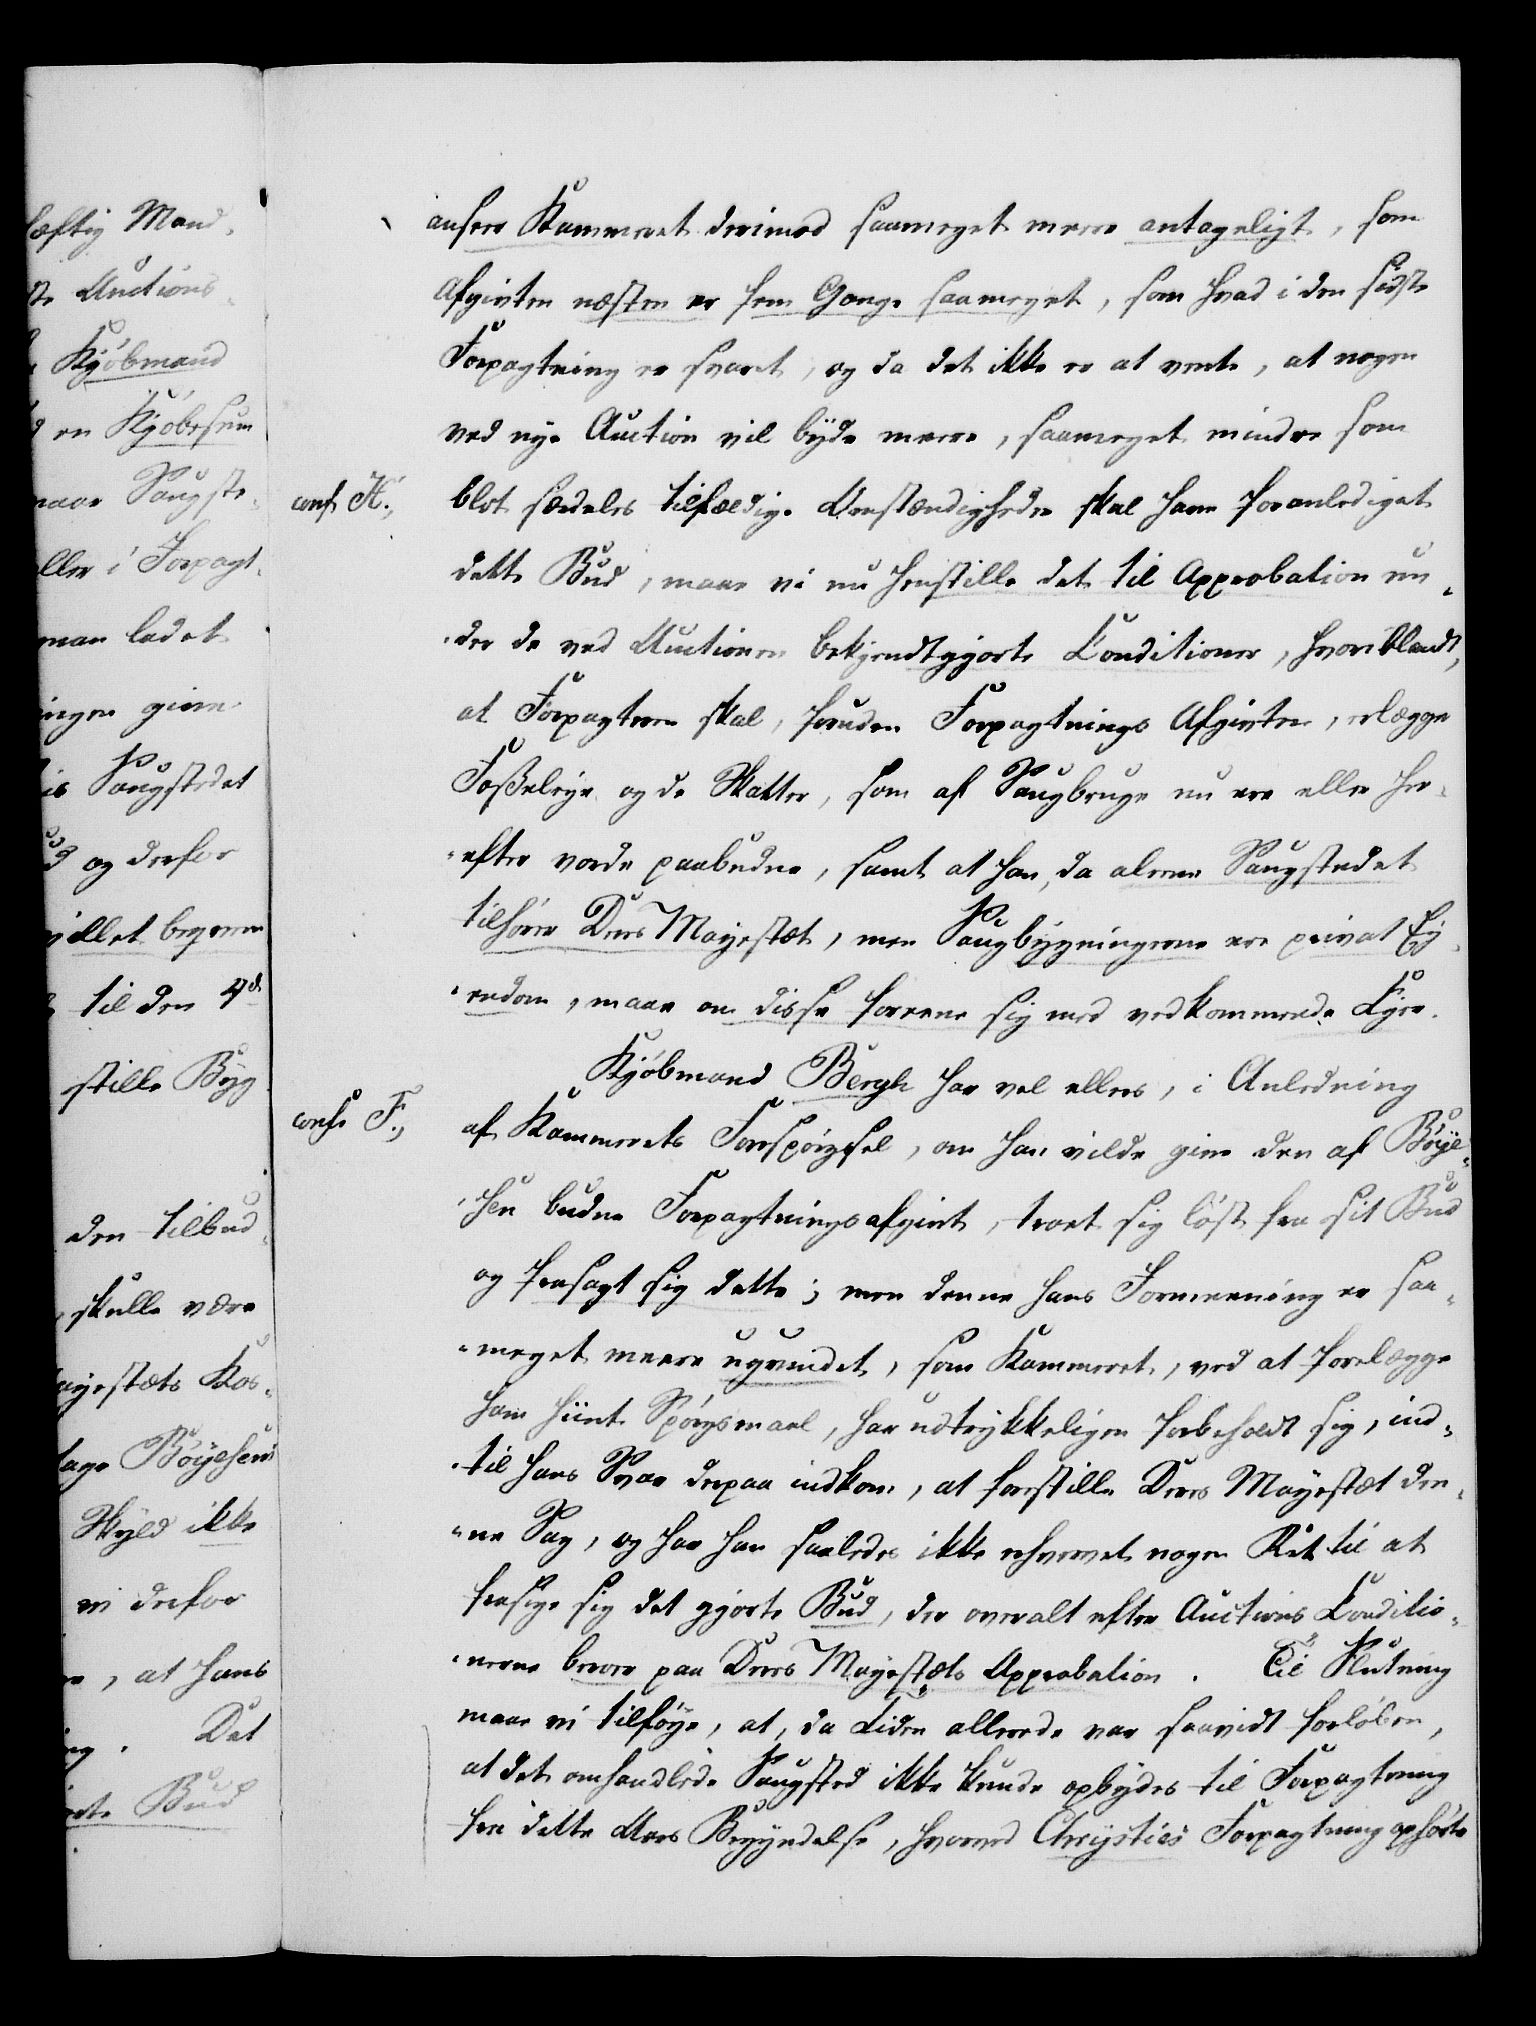 læftig Mand,
ste Auctions-
Kjöbmand
en Kjöbesum
maae Saugste-
eller i Forpagt-
man ladet
ingen give
Saugstedet
og derfor
villet begvem
til den 4de
stille Byg
den tilbud-
skulle være
Mayestæts Kas-
tage Böyesens
Skyld ikke
vi derfor
, at hans
Det
Bud
anseer Kammeret derimod saameget meere antageligt, som
Afgivten næsten er fem Gange saameget, som hvad i den sidste
Forpagtning er svaret, og da det ikke er at vente, at nogen
ved nye Auction vil byde meere, saameget mindre som
conf. H.,
blot særdeles tilfældige Omstændigheder skal have foranlediget
dette Bud, maae vi nu henstille det til Approbation un-
-der de ved Auctionen bekjendtgjorte Conditioner, hvoriblandt,
at Forpagteren skal, foruden Forpagtnings Afgivten, erlægge
Fosseleye og de Skatter, som af Saugbruge nu ere eller her-
-efter vorde paabudne, samt at han, da alene Saugstedet
tilhörer Deres Mayestæt, men Saugbygningerne ere privat Ey-
-endom, maae om disse foreene sig med vedkommende Eyer.
Kjöbmand Bergh har vel ellers, i Anledning
conf. F.,
af Kammerets Forespörgsel, om han vilde give den af Böye-
-sen budne Forpagtningsafgivt, troet sig löst fra sit Bud
og frasagt sig dette; men denne hans Formeening er saa-
-meget meere ugrundet, som Kammeret, ved at forelægge
ham hiint Spörgsmaal, har udtrykkeligen forbeholdt sig, ind-
-til hans Svar derpaa indkom, at forestille Deres Mayestæt den-
-ne Sag, og har han saaledes ikke erhvervet nogen Ret til at
frasige sig det gjorte Bud, der overalt efter Auctions Conditio-
-nerne beroer paa Deres Mayestæts Approbation. Til Slutning
maae vi tilföye, at, da Tiden allerede var saavidt forlöben,
at det omhandlede Saugsted ikke kunde opbydes til Forpagtning
fra dette Aars Begyndelse, hvorved Chrysties Forpagtning ophörte